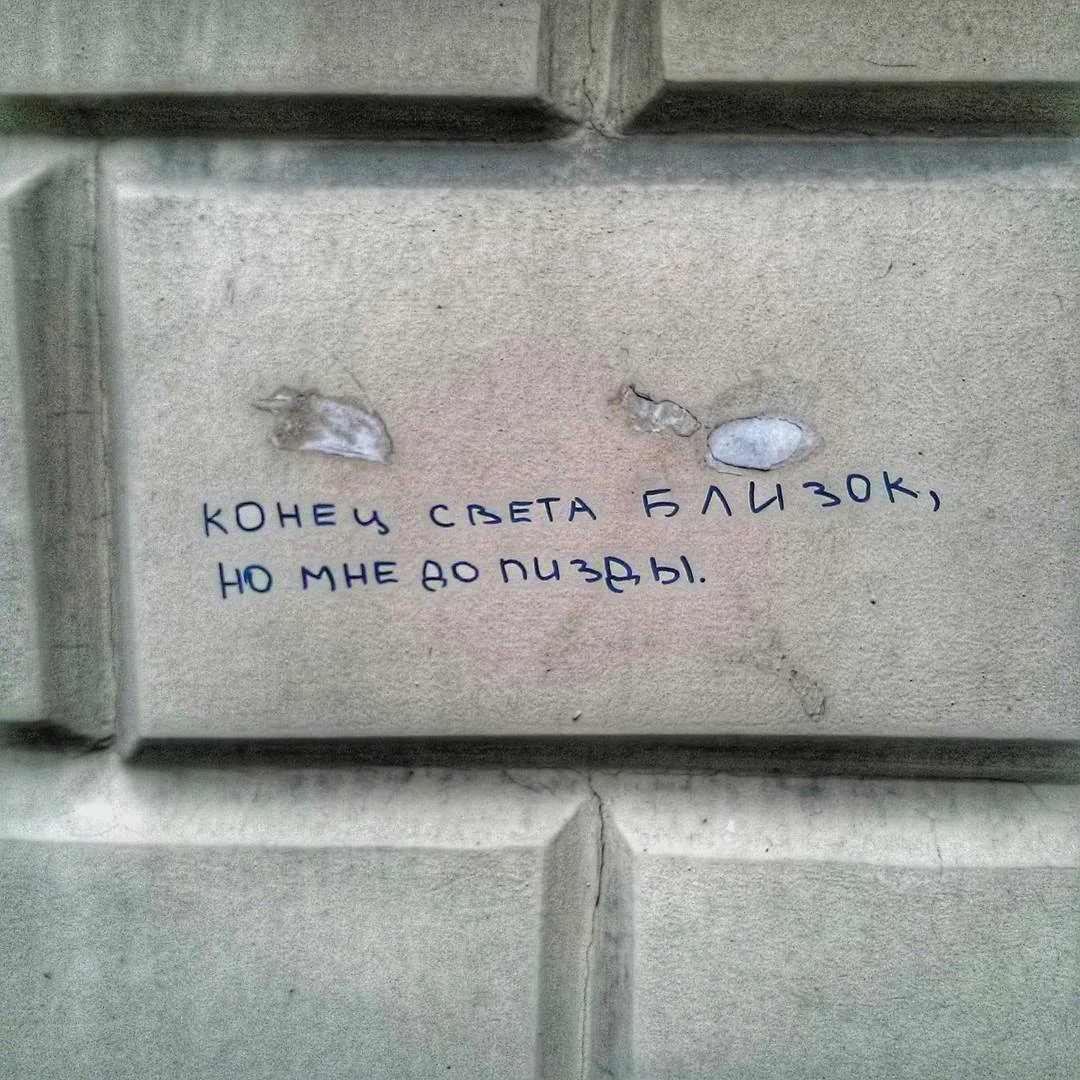 КОНЕЦ СВЕТА БЛИЗОК,
НО МНЕ ДО ПИЗДЫ.